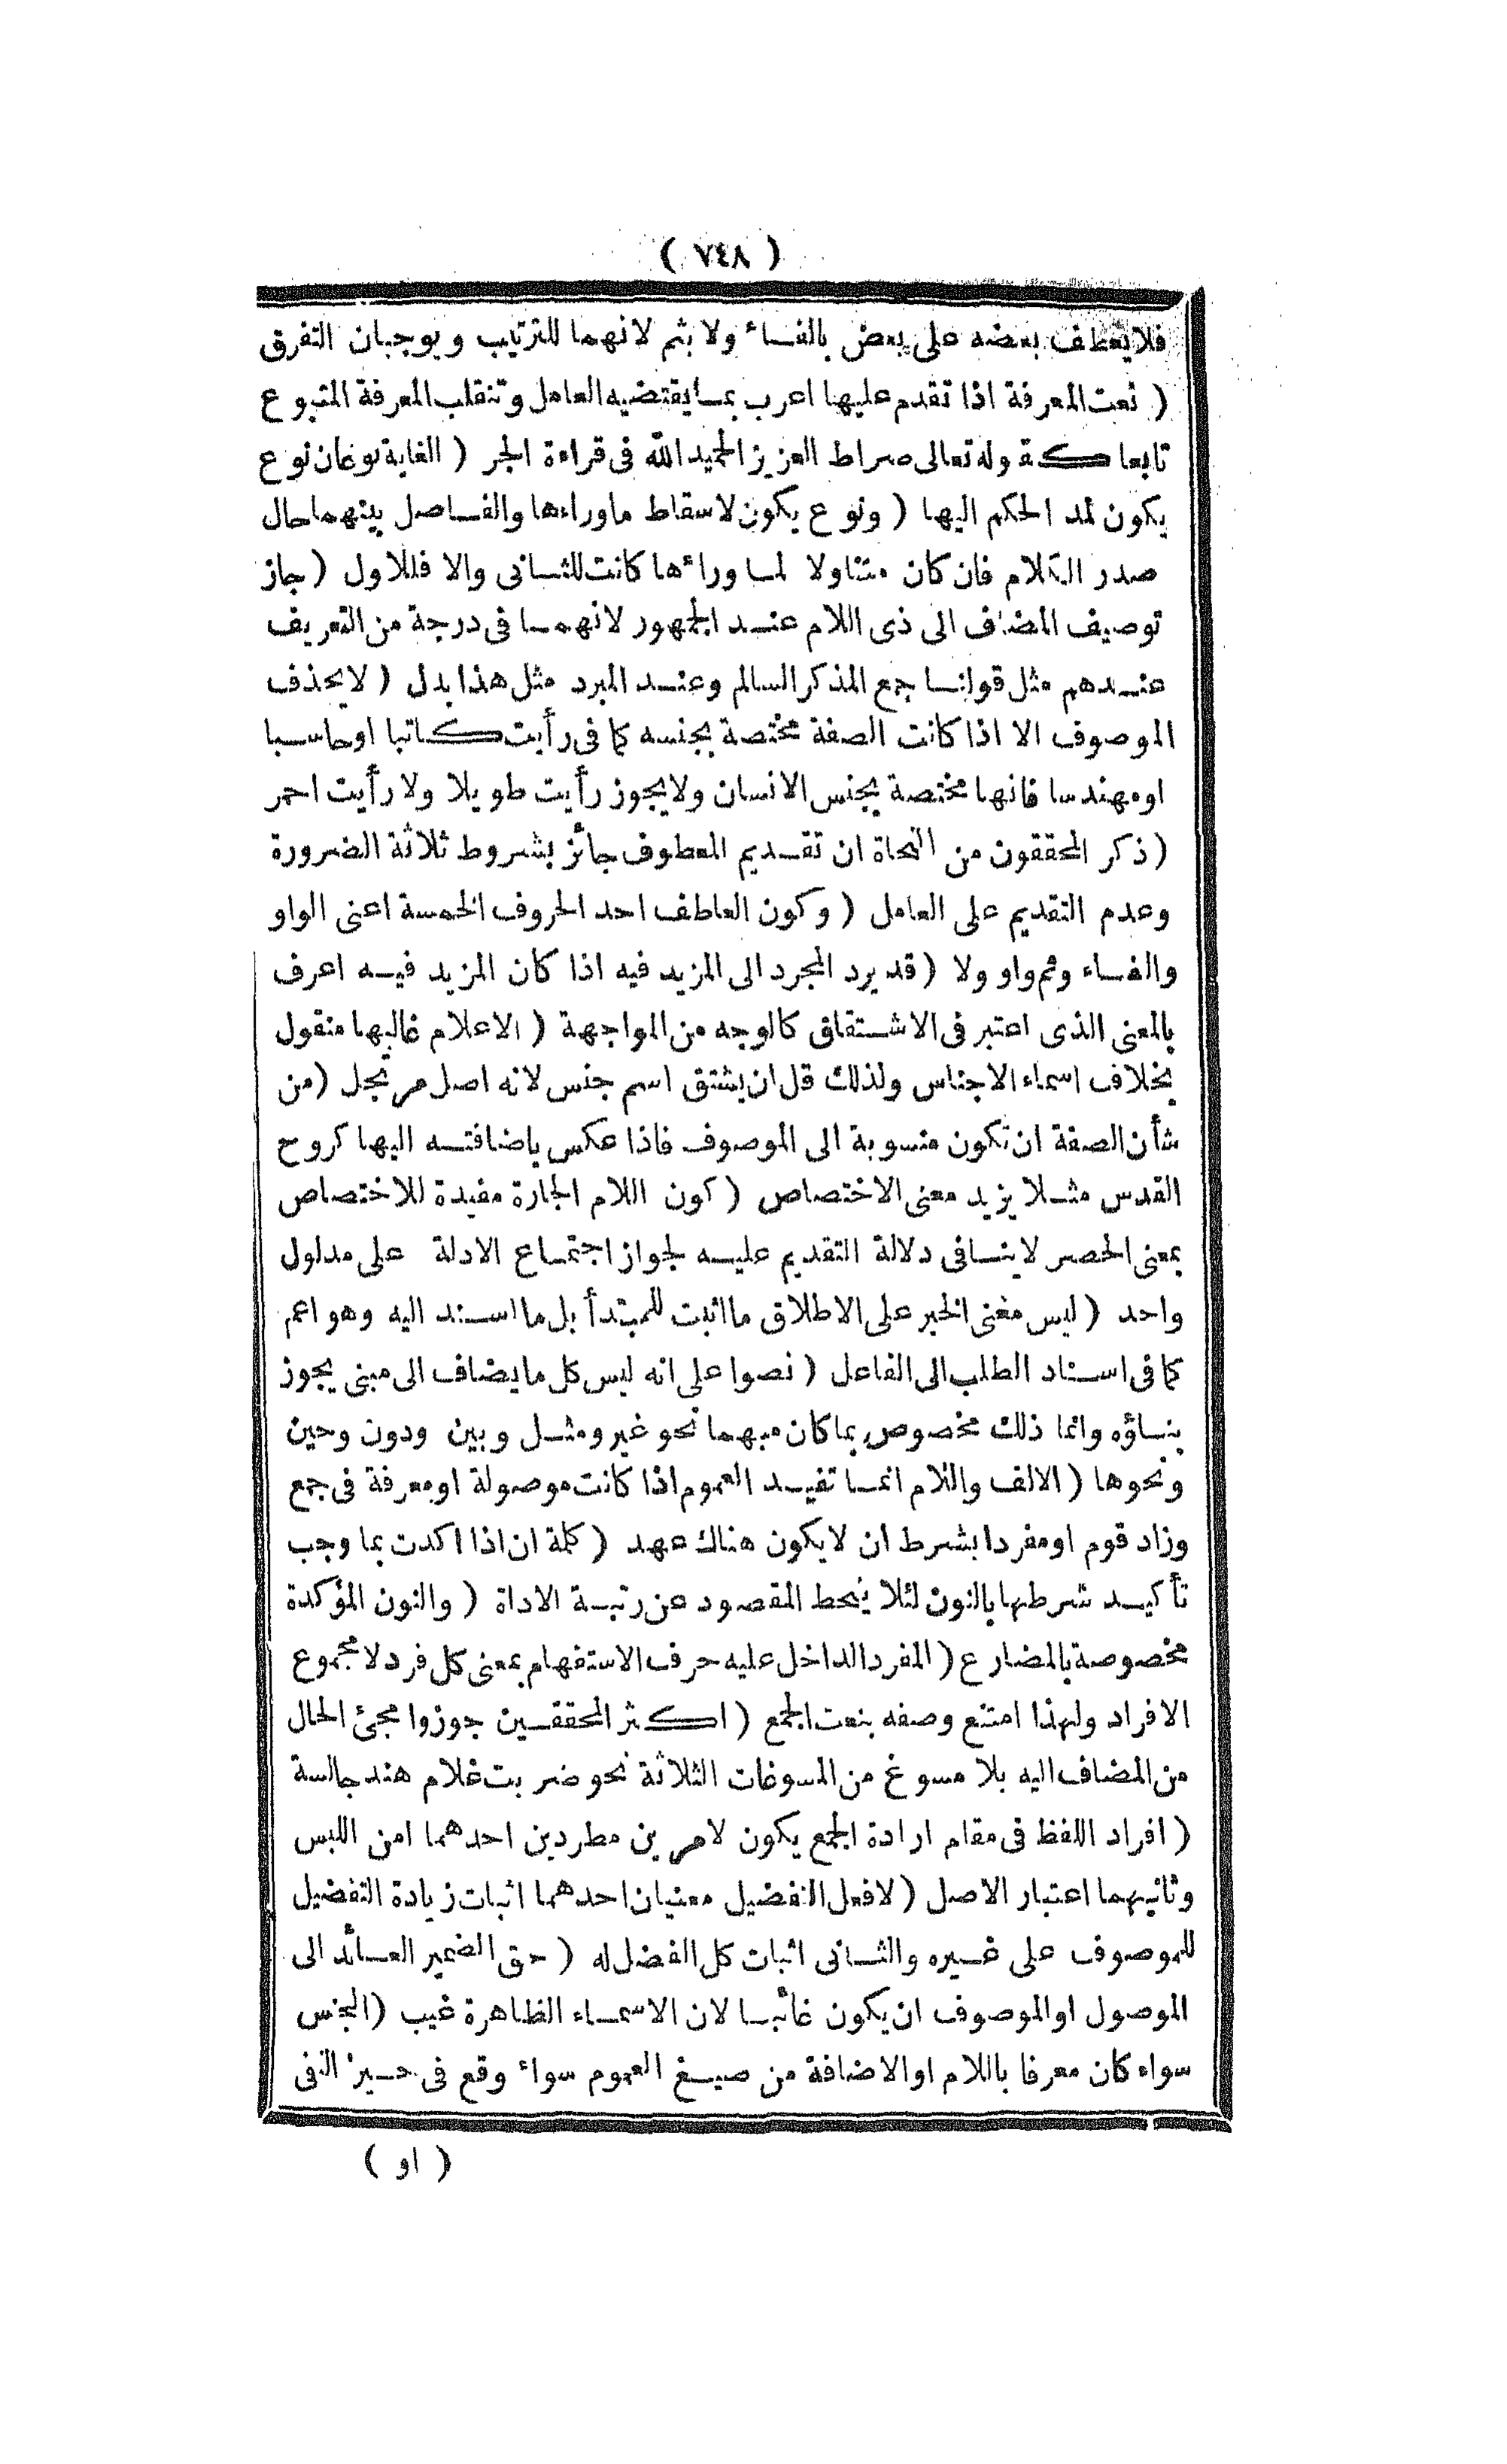 ( ٧٤٨ )
فلا يعطف بعضه على بعض بالفاء ولا بثم لانهما للترتيب ويوجبان التفرق
( نعت المعرفة اذا تقدم عليها اعرب بما يقتضيه العامل وتنقلب المعرفة المتبوع
تابعا كقوله تعالى صراط العزيز الحميد الله فى قراءة الجر ( الغاية نوعان نوع
يكون لمد الحكم اليها ( ونوع يكون لاسقاط ماوراءها والفاصل بينهما حال
صدر الكلام فان كان متناولا لما وراءها كانت للثانى والا فللاول ( جاز
توصيف المضاف الى ذى اللام عند الجمهور لانهما فى درجة من التعريف
عندهم مثل قولنا جمع المذكر السالم وعند المبرد مثل هذا بدل ( لا يحذف
الموصوف الا اذا كانت الصفة مختصة بجنسه كما فى رأيت كاتبا اوحاسبا
اومهندسا فانها مختصة بجنس الانسان ولايجوز رأيت طويلا ولا رأيت احمر
( ذكر المحققون من النحاة ان تقديم المعطوف جائز بشروط ثلاثة الضرورة
وعدم التقديم على العامل ( وكون العاطف احد الحروف الخمسة اعنى الواو
والفاء وثم واو ولا ( قد يرد المجرد الى المزيد فيه اذا كان المزيد فيه اعرف
بالمعنى الذى اعتبر فى الاشتقاق كالوجه من المواجهة ( الاعلام غالبها منقول
بخلاف اسماء الاجناس ولذلك قل ان يشتق اسم جنس لانه اصل مرتجل ( من
شأن الصفة ان تكون منسوبة الى الموصوف فاذا عكس باضافته اليها كروح
القدس مثلا يزيد معنى الاختصاص ( كون اللام الجارة مفيدة للاختصاص
بمعنى الحصر لاينافى دلالة التقديم عليه لجواز اجتماع الادلة على مدلول
واحد ( ليس معنى الخبر على الاطلاق ما اثبت للمبتدأ بل ما اسند اليه وهو اعم
كما فى اسناد الطلب الى الفاعل ( نصوا على انه ليس كل ما يضاف الى مبنى يجوز
بناؤه وانما ذلك مخصوص بما كان مبهما نحو غير ومثل وبين ودون وحين
ونحوها ( الالف واللام انما تفيد العموم اذا كانت موصولة او معرفة فى جمع
وزاد قوم او مفردا بشرط ان لا يكون هناك عهد ( كلمة ان اذا اكدت بما وجب
تأكيد شرطها بالنون لئلا ينحط المقصود عن رتبة الاداة ( والنون المؤكدة
مخصوصة بالمضارع ( المفرد الداخل عليه حرف الاستفهام بمعنى كل فرد لا مجموع
الافراد ولهذا امتنع وصفه بنعت الجمع ( اكثر المحققين جوزوا مجئ الحال
من المضاف اليه بلا مسوغ من المسوغات الثلاثة نحو ضربت غلام هند جالسة
( افراد اللفظ فى مقام ارادة الجمع يكون لامرين مطردين احدهما امن اللبس
وثانيهما اعتبار الاصل ( لافعل التفضيل معنيان احدهما اثبات زيادة التفضيل
للموصوف على غيره والثانى اثبات كل الفضل له ( حق الضمير العائد الى
الموصول او الموصوف ان يكون غائبا لان الاسماء الظاهرة غيب ( الجنس
سواء كان معرفا باللام او الاضافة من صيغ العموم سواء وقع فى حيز النفى
( او )